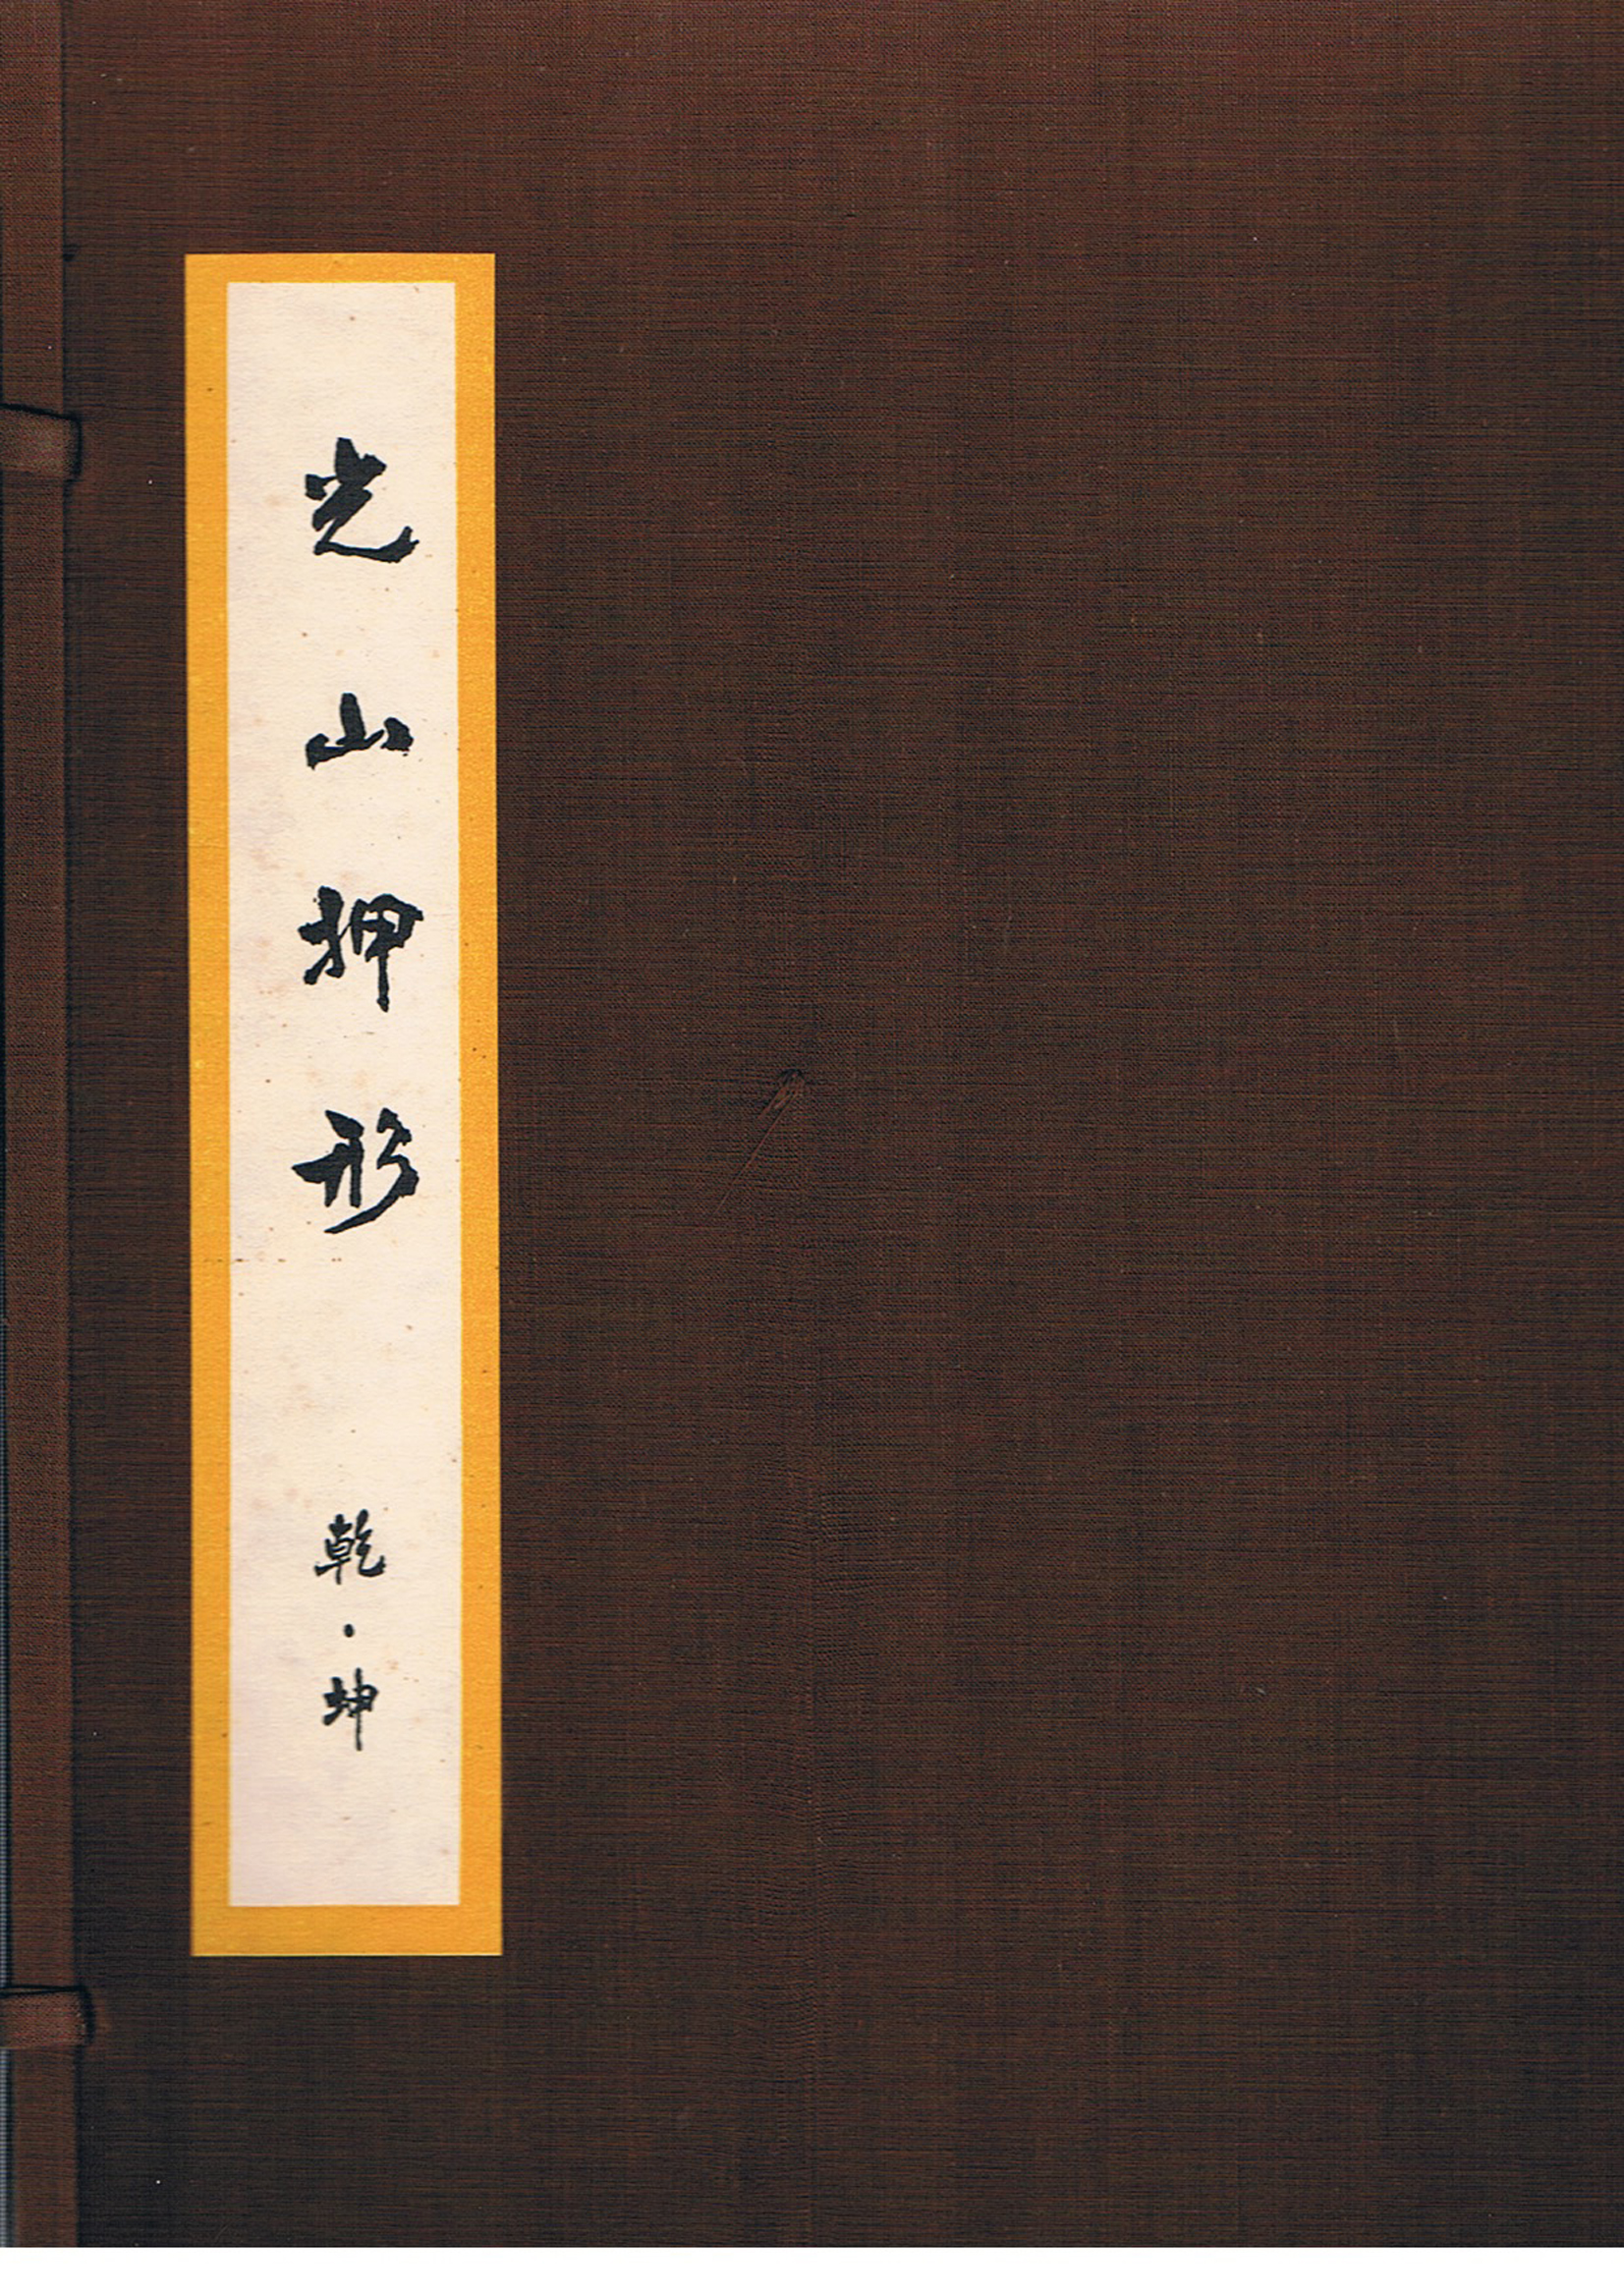 光山押形 乾・坤